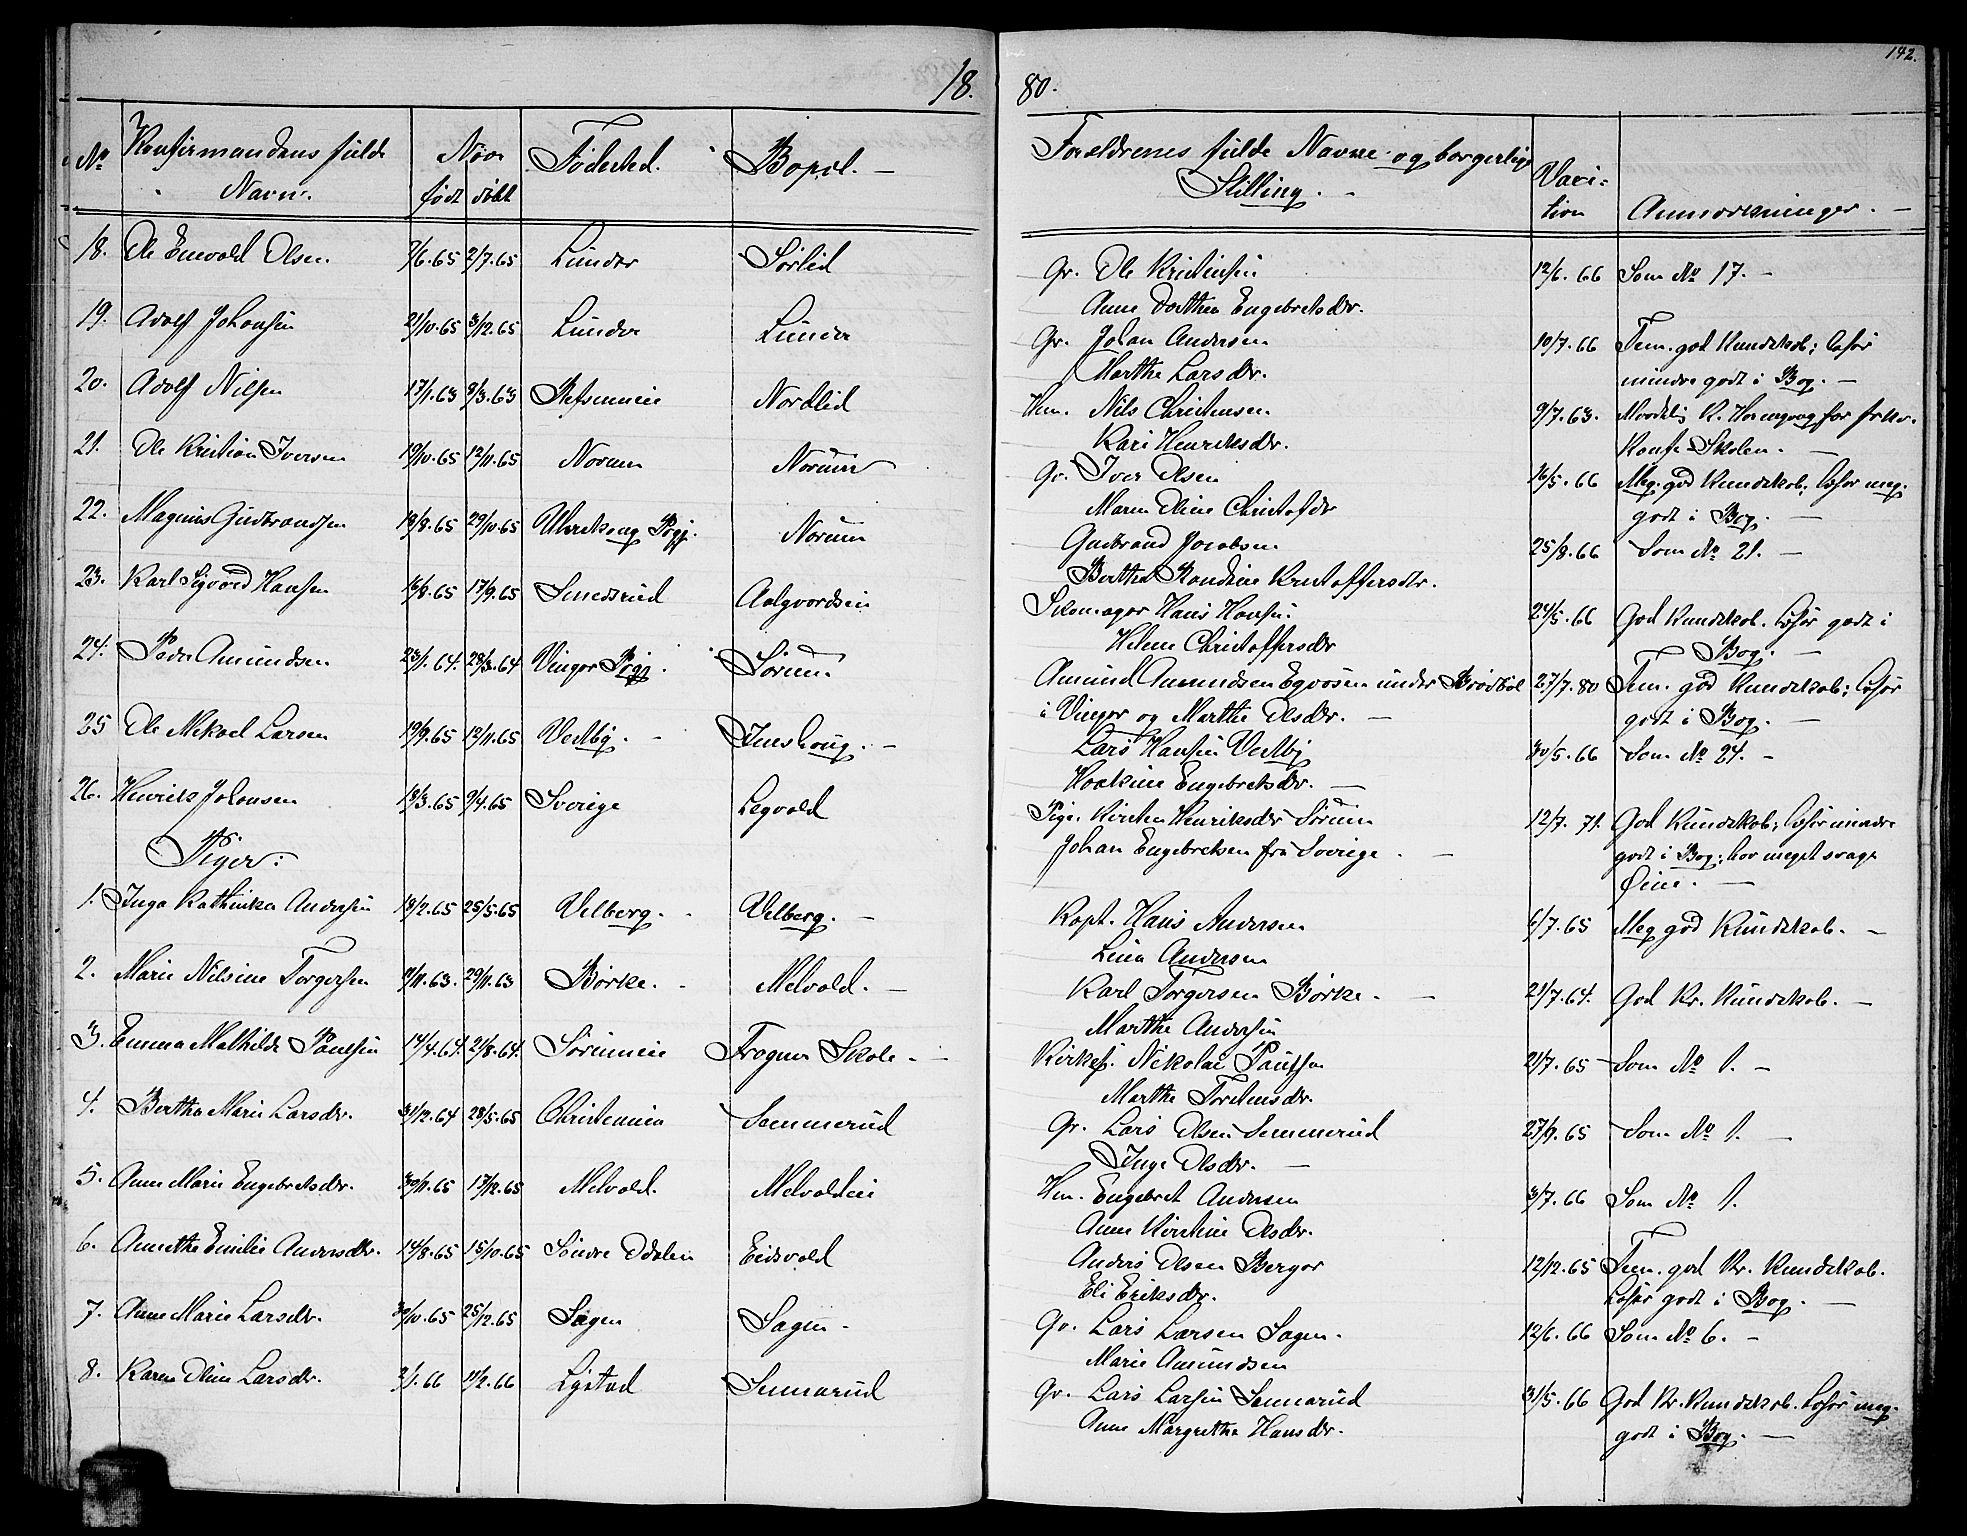 142.
18. 80.
No Konfirmandens fulde Navn. Naar født døbt Fødested. Bopel. Forældrenes fulde Navne og borgerlige Stilling. Vaci- tion Anmærkninger.
18. Ole Enevold Olsen 7/6.65 2/7.65 Lunder Sørlid Gr. Ole Kristensen 12/6.66 Som No 17.
Anne Dorthea Engebretsdr.
19. Adolf Johansen 21/10.65 3/12.65 Lunder Lunder Gr. Johan Andersen 10/7.66 Tem. god Kundskab; læser
Marthe Larsdr. mindre godt i Bog.
20. Adolf Nilsen 17/1.63 9/3.63 Refsumeie Nordlid Hm. Nils Christensen 9/7.63.
Kari Henriksdr. Konf. Skolen.
21. Ole Kristian Iversen 19/10.65 12/11.65 Norum Norum Gr. Iver Olsen 16/5.66 Meg. god Kundskab; læser meg.
Maren Oline Christofdr godt i Bog.
22. Magnus Gudbrandsen 18/8.65 29/10.65 Ullensaker Prgj. Norum Gudbrand Jacobsen 25/8.66 Som No 21.
Berthe Randine Kristoffersdtr.
23. Karl Sigvard Hansen 16/8.65 17/9.65 Smedsrud Aalgaardseie Skomager Hans Hansen 24/5.66 God Kundskab. Læser godt i
Helene Christoffersdr Bog.
24. Peder Amundsen 23/1.64. 28/3.64 Vinger Prgj. Sørum Amund Amundsen Egnosen under Brødbøl 27/7.80 Tem. god Kundskab; læser
i Vinger og Marthe Olsdr. godt i Bog.
25 Ole Mikael Larsen 19/9.65 12/11.65 Vestby. Imshaug. Lars Hansen Vestby 30/5.66 Som No 24.
Haakine Engebretsdr.
26. Henrik Johansen 18/3.65 9/4.65 Sverige Legvold Pige. Kirsten Henriksdr Sørum 12/7.71. God Kundskab; læser mindre
Johan Engebretsen fra Sverige. godt i Bog; har meget svage
Øine.
Piger:
1. Inga Kathinka Andersen 18/2.65 25/5.65 Velberg. Velberg. Kapt. Hans Andersen 6/7.65 Meg god Kundskab.
Lina Andersen
2. Marie Nilsine Torgersen 2/11.63. 29/11.63 Børke. Melvold. Karl Torgersen Børke. 21/7.64. God Kr. Kundskab.
Marthe Andersen
3. Emma Mathilde Paulsen 14/4.64. 21/8.64. Sørumeie Frogner Skole. Kirkes. Nikolai Paulsen 21/7.65 Som No 1.
Marthe Torstensdr.
4. Berthe Marie Larsdr. 31/12.64 28/5.65 Christiania Sommerud Gr. Lars Olsen Sommerud 27/9.65 Som No 1.
Inge Olsdr.
5. Anne Marie Engebretsdr. 30/11.65 17/12.65 Melvold. Melvoldeie Hm. Engebret Andersen 3/7.66 Som No 1.
Anne Kirstine Olsdr.
6. Annethe Emilie Andersdtr. 14/8.65 15/10.65 Søndre Odalen Eidsvold Anders Olsen Berger 12/12.65 Tem. god Kr. Kundskab.
Eli Eriksdr. Læser godt i Bog.
7. Anne Marie Larsdr. 30/10.65 25/12.65 Sagen Sagen. Gr. Lars Larsen Sagen. 12/6.66 Som No 6.
Marie Amundsen
8. Karen Oline Larsdr. 2/1.66 11/2.66 Lystad Sennerud Gr. Lars Larsen Sennerud 31/5.66 God Kr. Kundskab. Læser meg.
Anne Margrethe Hansdr. godt i Bog.